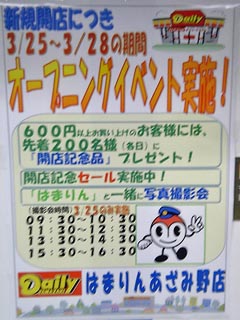 新規開店につき
Daily
3/25～3/28の期間
オープニングイベント実施！
600円以上お買い上げのお客様には、
先着200名様（各日）に
「開店記念品」プレゼント！
開店記念セール実施中！
「はまりん」と一緒に写真撮影会
【撮影会時間】3/25のみ実施
09：30～10：30
11：30～12：30
13：30～14：30
15：30～16：30
Daily
はまりんあざみ野店